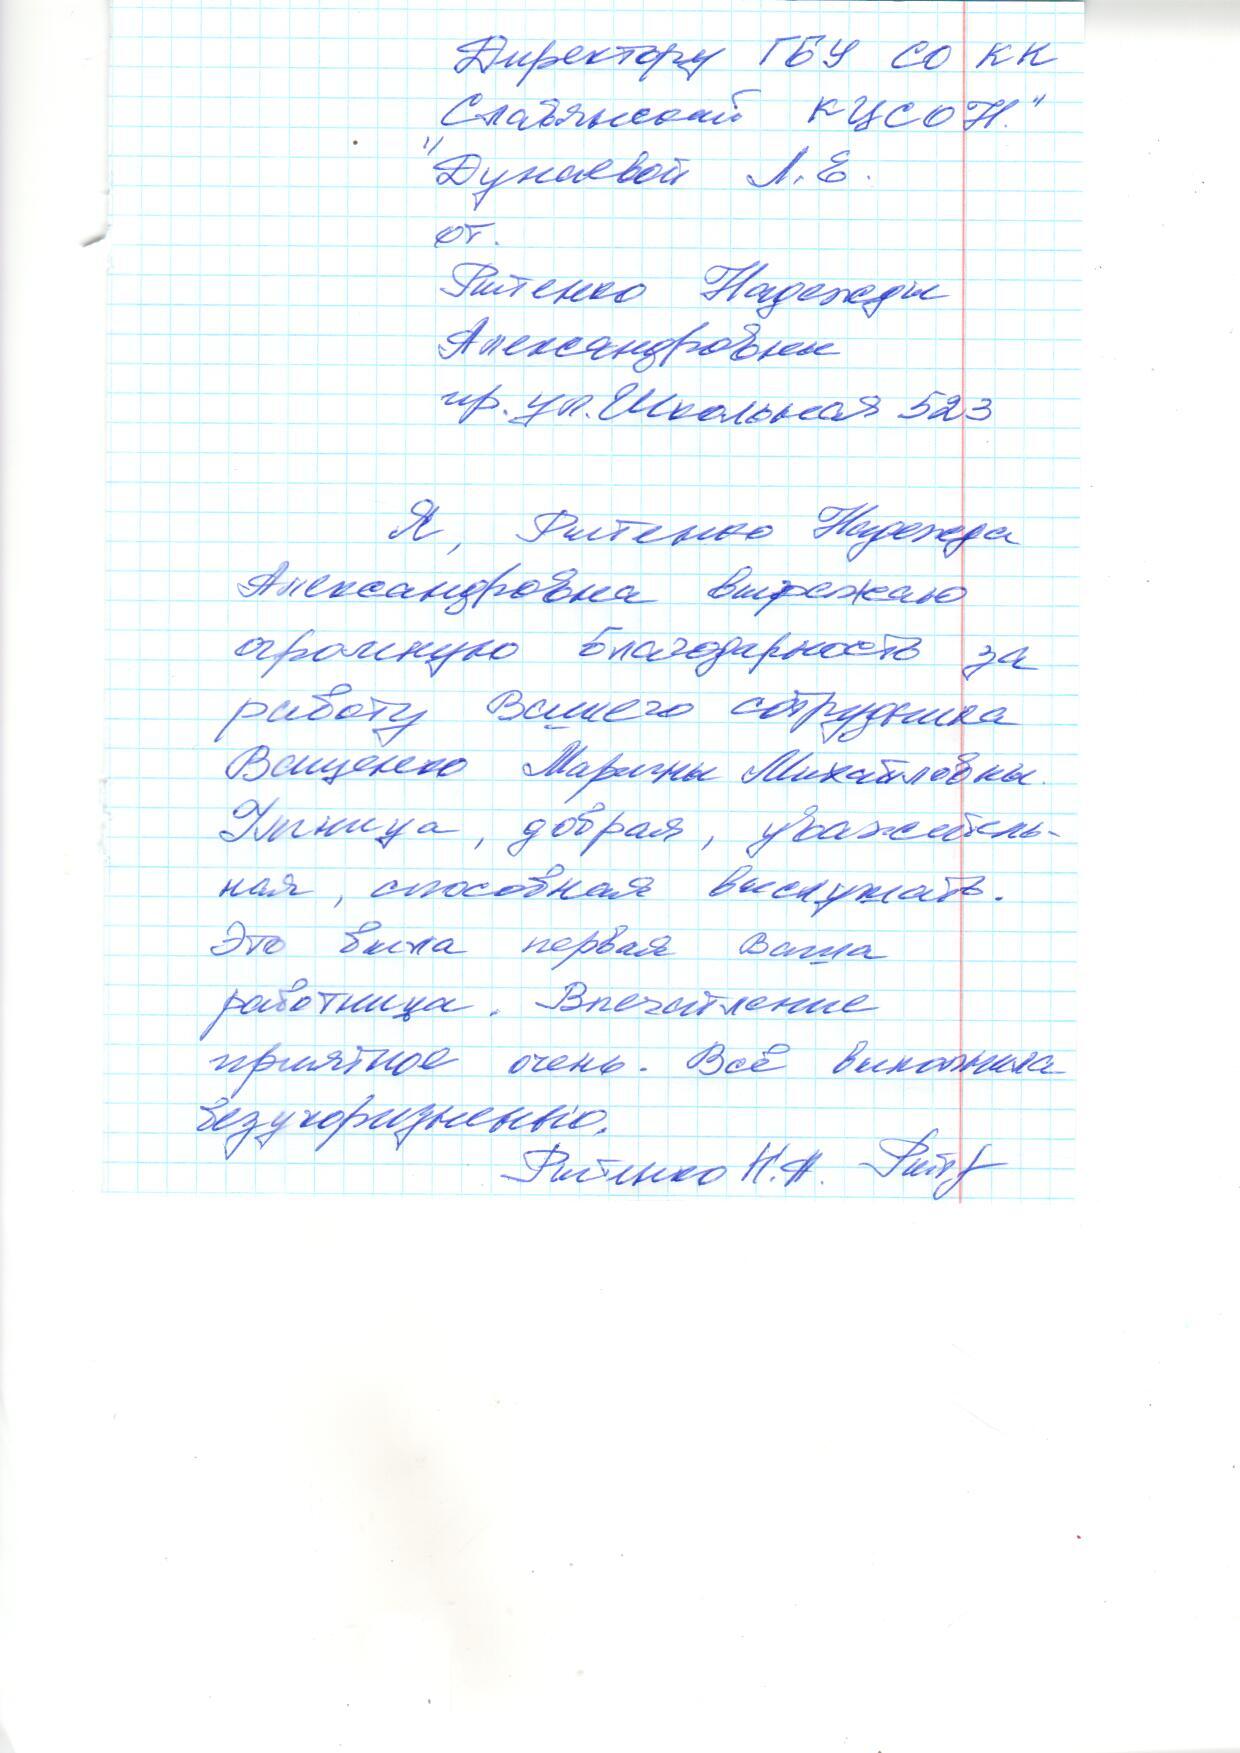 Директору ГБУ СО КК
Славянский КЦСОН."
"Дунаевой Л.Е.
от.
Рытенко Надежды
Александровны
пр. ул. Школьная 523
Я, Рытенко Надежда
Александровна выражаю
огромную благодарность за
работу Вашего сотрудника
Ващенко Марины Михайловны.
Умница, добрая, уважитель-
ная, способная выслушать.
Это была первая Ваша
работница. Впечатление
приятное очень. Всё выполнила
безукоризненно.
Рытенко Н.А.